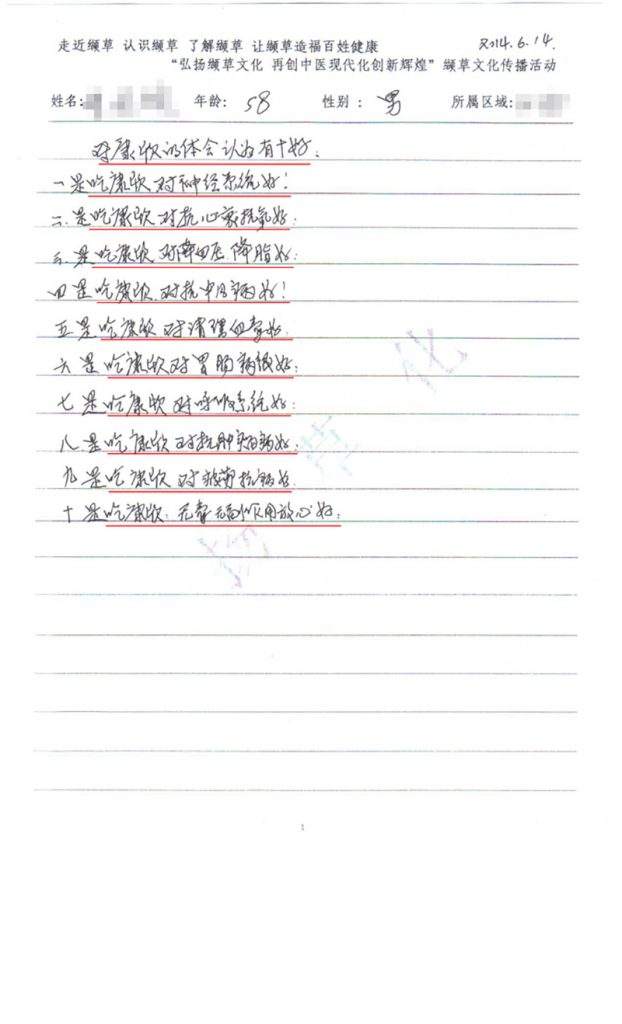 走近缬草 认识缬草 了解缬草 让缬草造福百姓健康 2014.6.14.
“弘扬缬草文化 再创中医现代化创新辉煌”缬草文化传播活动
姓名: 年龄: 58 性别: 男 所属区域:
对康欣的体会认为有十好:
一是吃康欣对神经系统好!
二是吃康欣对抗心衰抗氧好:
三是吃康欣对降血压.降脂好:
四是吃康欣.对抗中风病好!
五是吃康欣对清理血管好.
六是吃康欣对胃肠病级好:
七是吃康欣对呼吸系统好:
八.是吃康欣对抗肿瘤病好:
九是吃康欣对疲劳抗病好.
十是吃康欣.无毒无副作用放心好:
扬 草 化
1